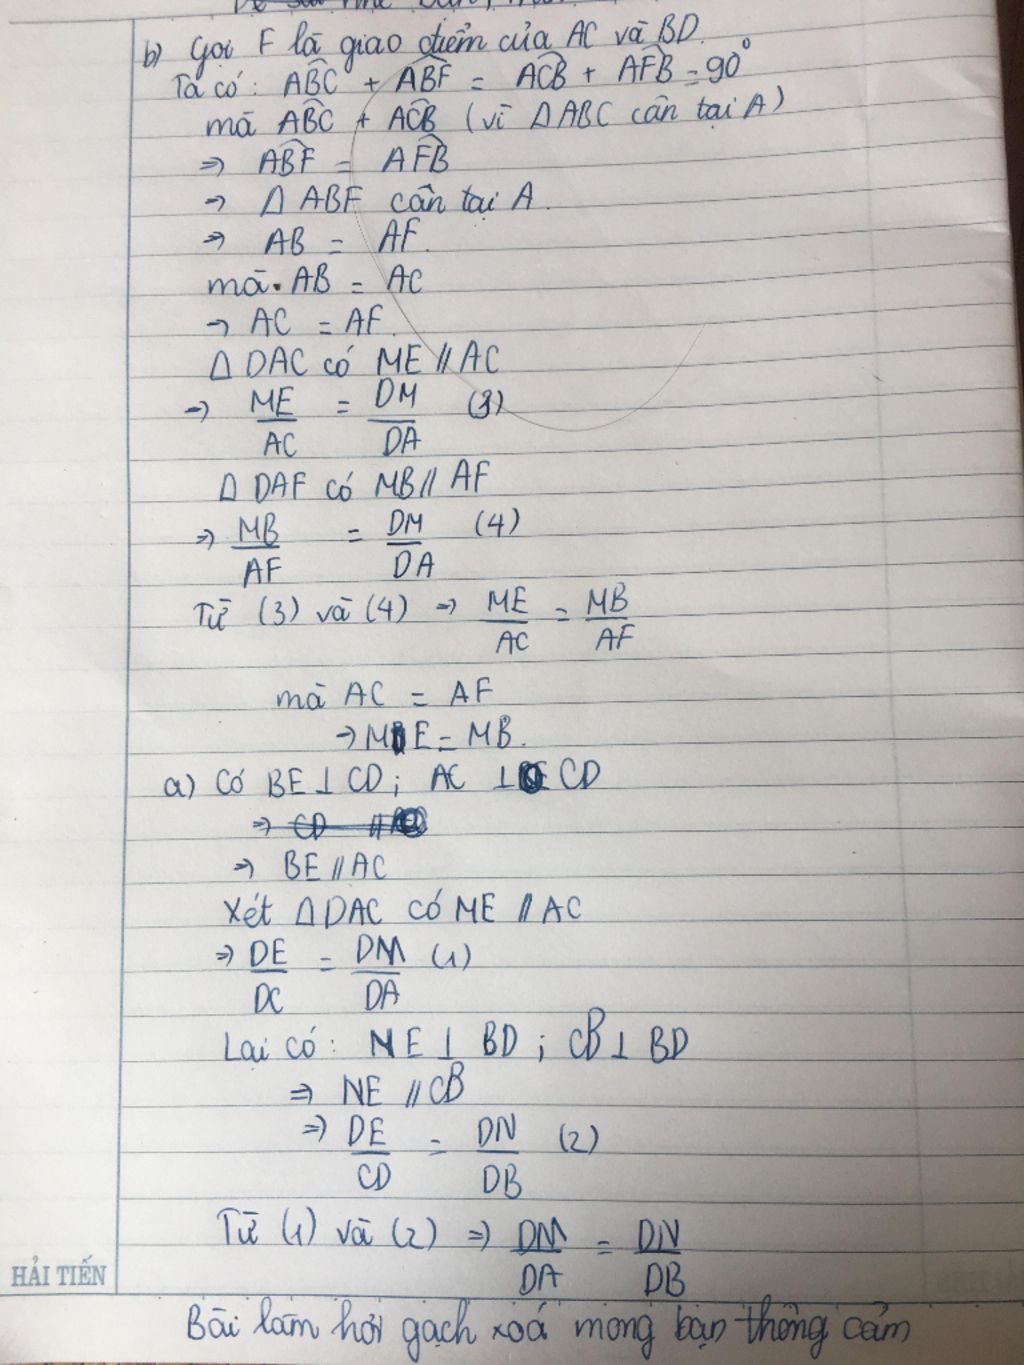 b) Gọi F là giao điểm của AC và BD.
Ta có: ABC + ABF = ACB + AFB = 90°
mà ABC + ACB (vì Δ ABC cân tại A)
⇒ ABF = AFB
→ Δ ABF cân tại A.
⇒ AB = AF.
mà AB = AC
→ AC = AF.
Δ DAC có ME // AC
→ ME/AC = DM/DA (3)
Δ DAF có MB // AF
⇒ MB/AF = DM/DA (4)
Từ (3) và (4) → ME/AC = MB/AF
mà AC = AF
→ ME = MB.
a) Có BE ⊥ CD; AC ⊥ CD
⇒ CD //
⇒ BE // AC
Xét Δ DAC có ME // AC
⇒ DE/DC = DM/DA (1)
Lại có: NE ⊥ BD; CB ⊥ BD
⇒ NE // CB
⇒ DE/CD = DN/DB (2)
Từ (1) và (2) ⇒ DM/DA = DN/DB
HẢI TIẾN
Bài làm hơi gạch xoá mong bạn thông cảm